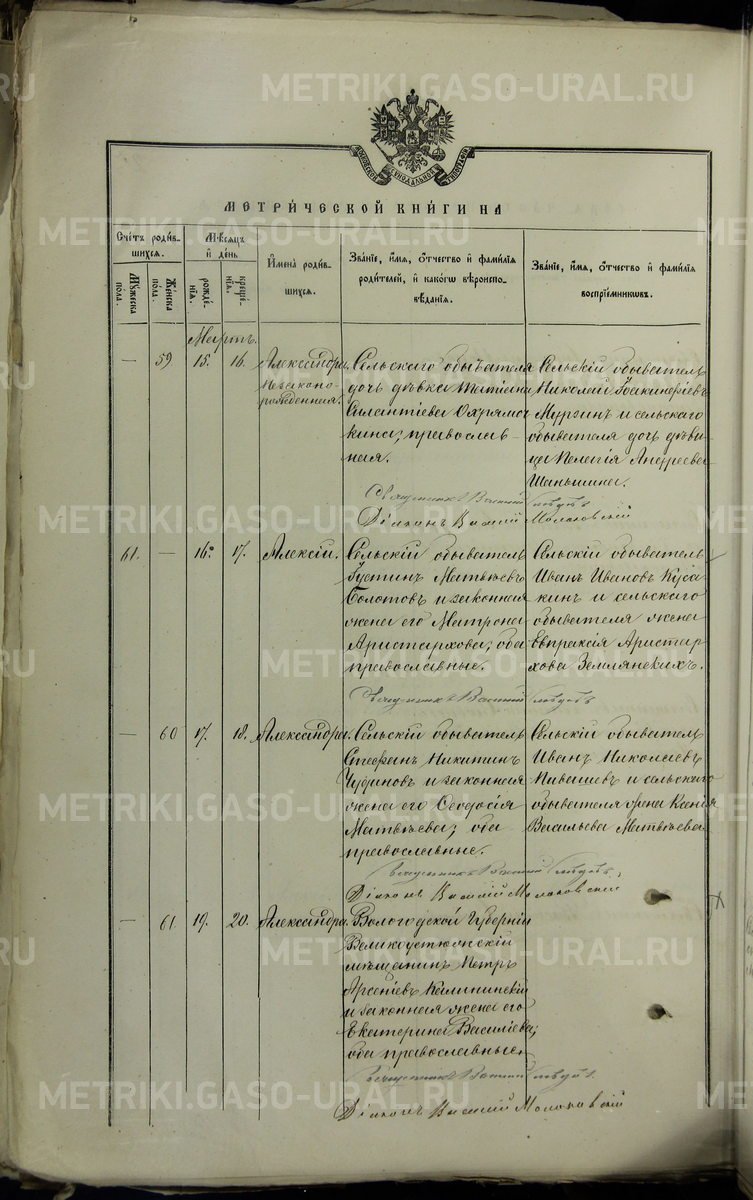 METRIKI.GASO-URAL.RU
МЕТРИ́ЧЕСКОЙ КНИ́ГИ НА
Сче́тъ роди́в-
шихся.
Мꙋжеска
пола.
Же́нска
по́ла.
Мѣ́сяцъ
и҆ де́нь
рожде́-
нїѧ.
креще́-
нїѧ.
И҆мена̀ роди́в-
шихся.
Зва́нїе, и҆́мя, ѻ҆́тчество и҆ фамѝлїѧ
роди́телей, и҆ како́гѡ вѣроиспо-
вѣ́данїѧ.
Зва́нїе, и҆́мя, ѻ҆́тчество и҆ фамѝлїѧ
воспрїе́мникѡвъ.
Мартъ.
— 59 15. 16. Александра
незаконо-
рожденная.
Сельскаго обывателя
дочь дѣвка Татіана
Силантіева Охрямо
кина, православ-
ная.
Сельскій обыватель
Николай Іоакинфіевъ
Мурзинъ и сельскаго
обывателя дочь дѣви-
ца Пелагія Андреева
Шаньшина.
Священникъ
Діаконъ Василій
61. — 16. 17. Алексій.
Сельскій обыватель
Іустинъ Матвѣевъ
Болотовъ и законная
жена его Матрона
Аристархова; оба
православные.
Сельскій обыватель
Иванъ Ивановъ Куса
кинъ и сельскаго
обывателя жена
Евпраксія Аристар
хова Землянскихъ.
Священникъ
— 60 17. 18. Александра.
Сельскій обыватель
Стефанъ Никитинъ
Чудиновъ и законная
жена его Ѳеодосія
Матвѣева; оба
православные.
Сельскій обыватель
Иванъ Николаевъ
Пивашевъ и сельскаго
обывателя жена Ксенія
Васильева Матвѣева
Священникъ
Діаконъ Василій
— 61. 19. 20. Александра.
Вологодской Губерніи
Великоустюжскій
мѣщанинъ Петръ
Арсеніевъ Калининскій
и законная жена его
Екатерина Василіева;
оба православные.
Священникъ
Діаконъ Василій